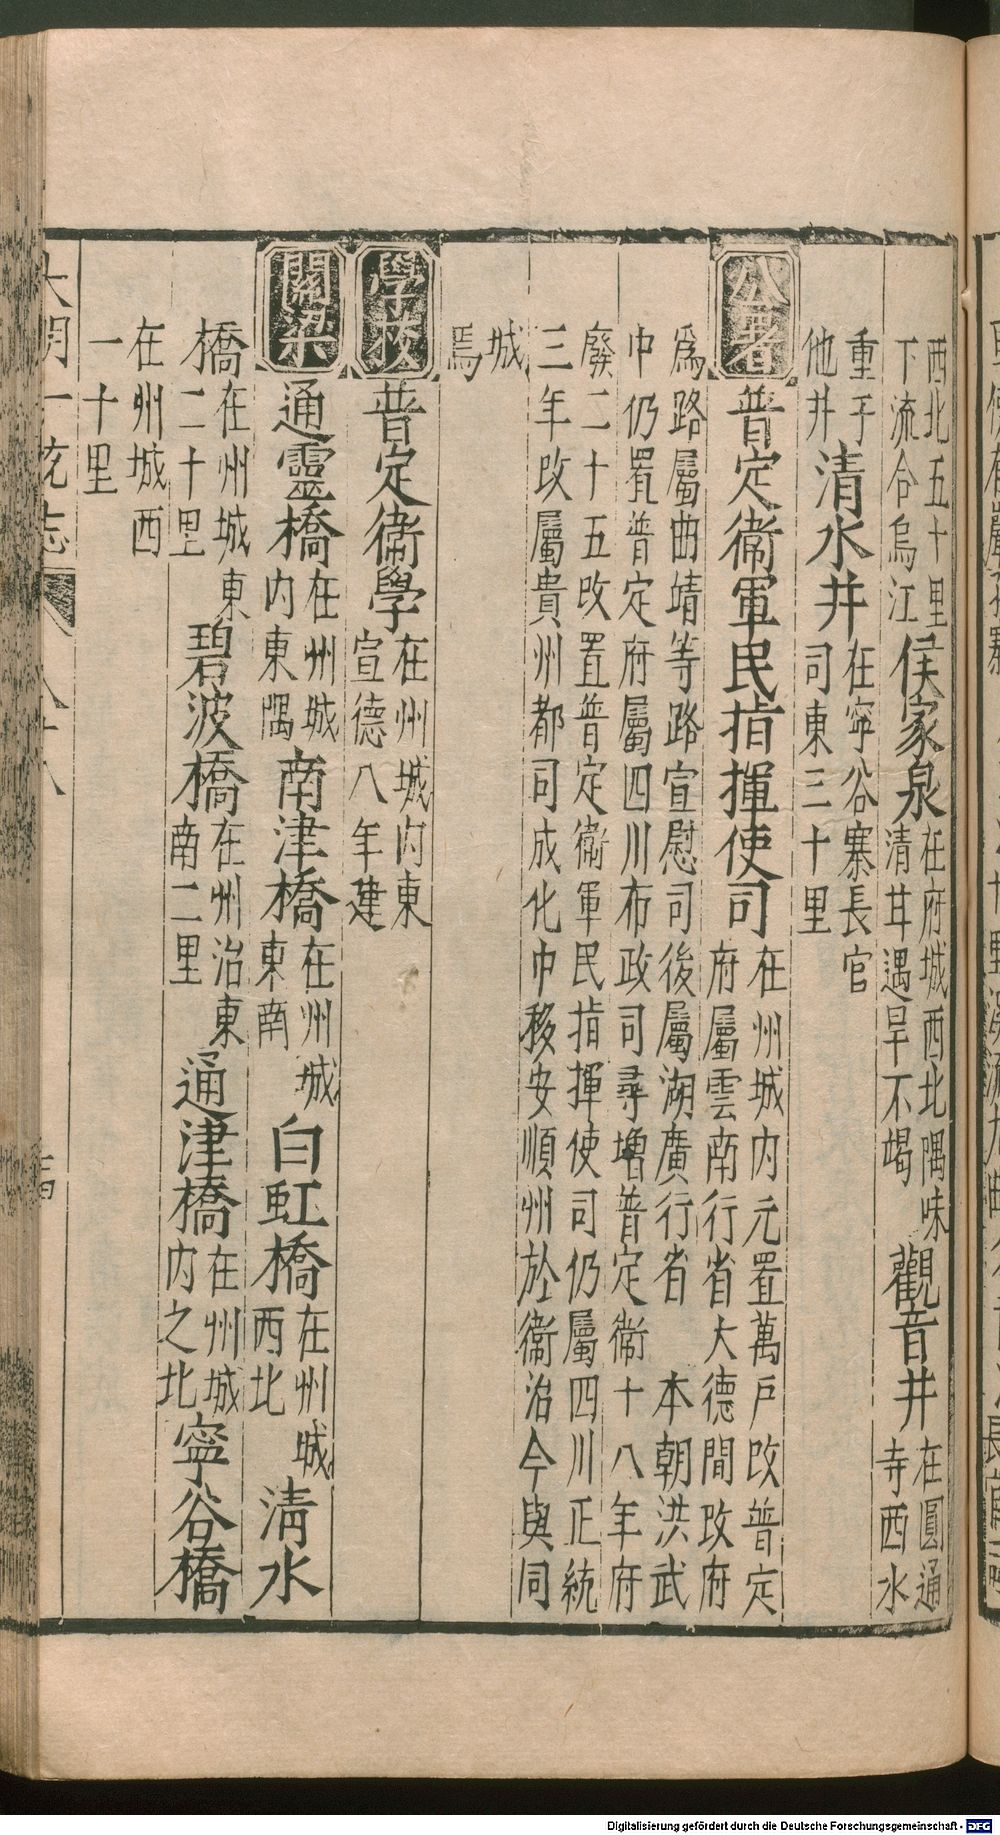 西北五十里
下流合烏江
侯家泉
在府城西北隅味
清甘遇旱不竭
觀音井
在圓通
寺西水
重于
他井
清水井
在寧谷寨長官
司東三十里
公署
普定衞軍民指揮使司
在州城内元置萬戶改普定
府屬雲南行省大德間改府
爲路屬曲靖等路宣慰司後屬湖廣行省 本朝洪武
中仍置普定府屬四川布政司尋增普定衞十八年府
廢二十五改置普定衞軍民指揮使司仍屬四川正統
三年改屬貴州都司成化中移安順州於衞治今與同
城
焉
學挍
普定衞學
在州城内東
宣德八年建
關梁
通靈橋
在州城
内東隅
南津橋
在州城
東南
白虹橋
在州城
西北
清水
橋
在州城東
二十里
碧波橋
在州治東
南二里
通津橋
在州城
内之北
寧谷橋
在州城西
一十里
大明一統志
Digitalisierung gefördert durch die Deutsche Forschungsgemeinschaft - DFG